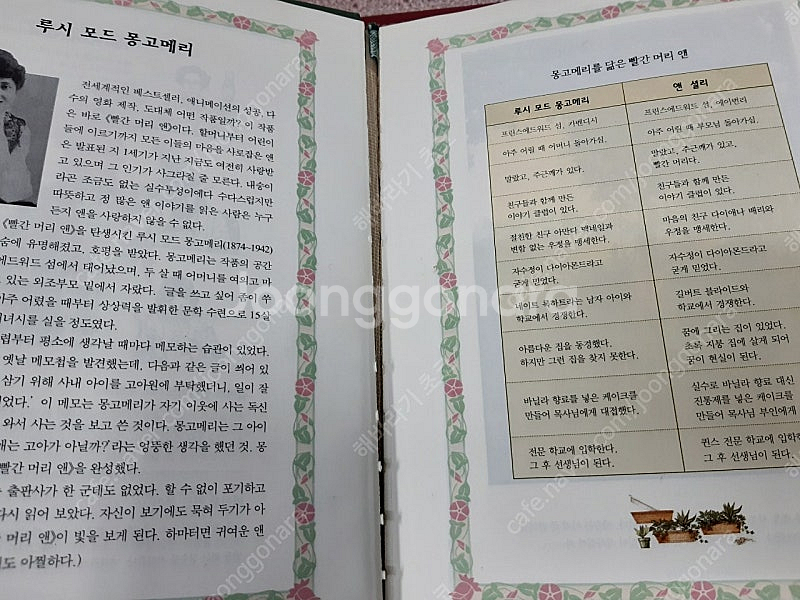 루시 모드 몽고메리
전세계적인 베스트셀러, 애니메이션의 성공, 다
수의 영화 제작, 도대체 어떤 작품일까? 이 작품
은 바로 《빨간 머리 앤》이다. 할머니부터 어린이
들에 이르기까지 모든 이들의 마음을 사로잡은 앤
은 발표된 지 1세기가 지난 지금도 여전히 사랑받
고 있으며 그 인기가 사그라질 줄 모른다. 내숭이
라곤 조금도 없는 실수투성이에다 수다스럽지만
따뜻하고 정 많은 앤 이야기를 읽은 사람은 누구
든지 앤을 사랑하지 않을 수 없다.
《빨간 머리 앤》을 탄생시킨 루시 모드 몽고메리(1874~1942)
유명해졌고, 호평을 받았다. 몽고메리는 작품의 공간
에드워드 섬에서 태어났으며, 두 살 때 어머니를 여의고 마
있는 외조부모 밑에서 자랐다. 글을 쓰고 싶어 좀이 쑤
아주 어렸을 때부터 상상력을 발휘한 문학 수련으로 15살
실을 정도였다.
럼부터 평소에 생각날 때마다 메모하는 습관이 있었다.
옛날 메모첩을 발견했는데, 다음과 같은 글이 씌어 있
삼기 위해 사내 아이를 고아원에 부탁했더니, 일이 잘
었다.’ 이 메모는 몽고메리가 자기 이웃에 사는 독신
와서 사는 것을 보고 쓴 것이다. 몽고메리는 그 아이
애는 고아가 아닐까?’라는 엉뚱한 생각을 했던 것. 몽
빨간 머리 앤》을 완성했다.
출판사가 한 군데도 없었다. 할 수 없이 포기하고
다시 읽어 보았다. 자신이 보기에도 묵혀 두기가 아
머리 앤》이 빛을 보게 된다. 하마터면 귀여운 앤
도 아찔하다.)
몽고메리를 닮은 빨간 머리 앤
루시 모드 몽고메리 앤 셜리
프린스에드워드 섬, 캐번디시 프린스에드워드 섬, 에이번리
아주 어릴 때 어머니 돌아가심. 아주 어릴 때 부모님 돌아가심.
말랐고, 주근깨가 있다. 말랐고, 주근깨가 있고,
빨간 머리다.
친구들과 함께 만든 친구들과 함께 만든
이야기 클럽이 있다. 이야기 클럽이 있다.
절친한 친구 아만다 맥네일과 마음의 친구 다이애나 배리와
변함 없는 우정을 맹세한다. 우정을 맹세한다.
자수정이 다이아몬드라고 자수정이 다이아몬드라고
굳게 믿었다. 굳게 믿었다.
네이트 록하트라는 남자 아이와 길버트 블라이드와
학교에서 경쟁한다. 학교에서 경쟁한다.
아름다운 집을 동경했다. 꿈에 그리는 집이 있었다.
하지만 그런 집을 찾지 못한다. 초록 지붕 집에 살게 되어
꿈이 현실이 된다.
바닐라 향료를 넣은 케이크를 실수로 바닐라 향료 대신
만들어 목사님에게 대접했다. 진통제를 넣은 케이크를
만들어 목사님 부인에게
전문 학교에 입학한다. 퀸스 전문 학교에 입학한
그 후 선생님이 된다. 그 후 선생님이 된다.
joonggonara
cafe.naver.com/joonggonara